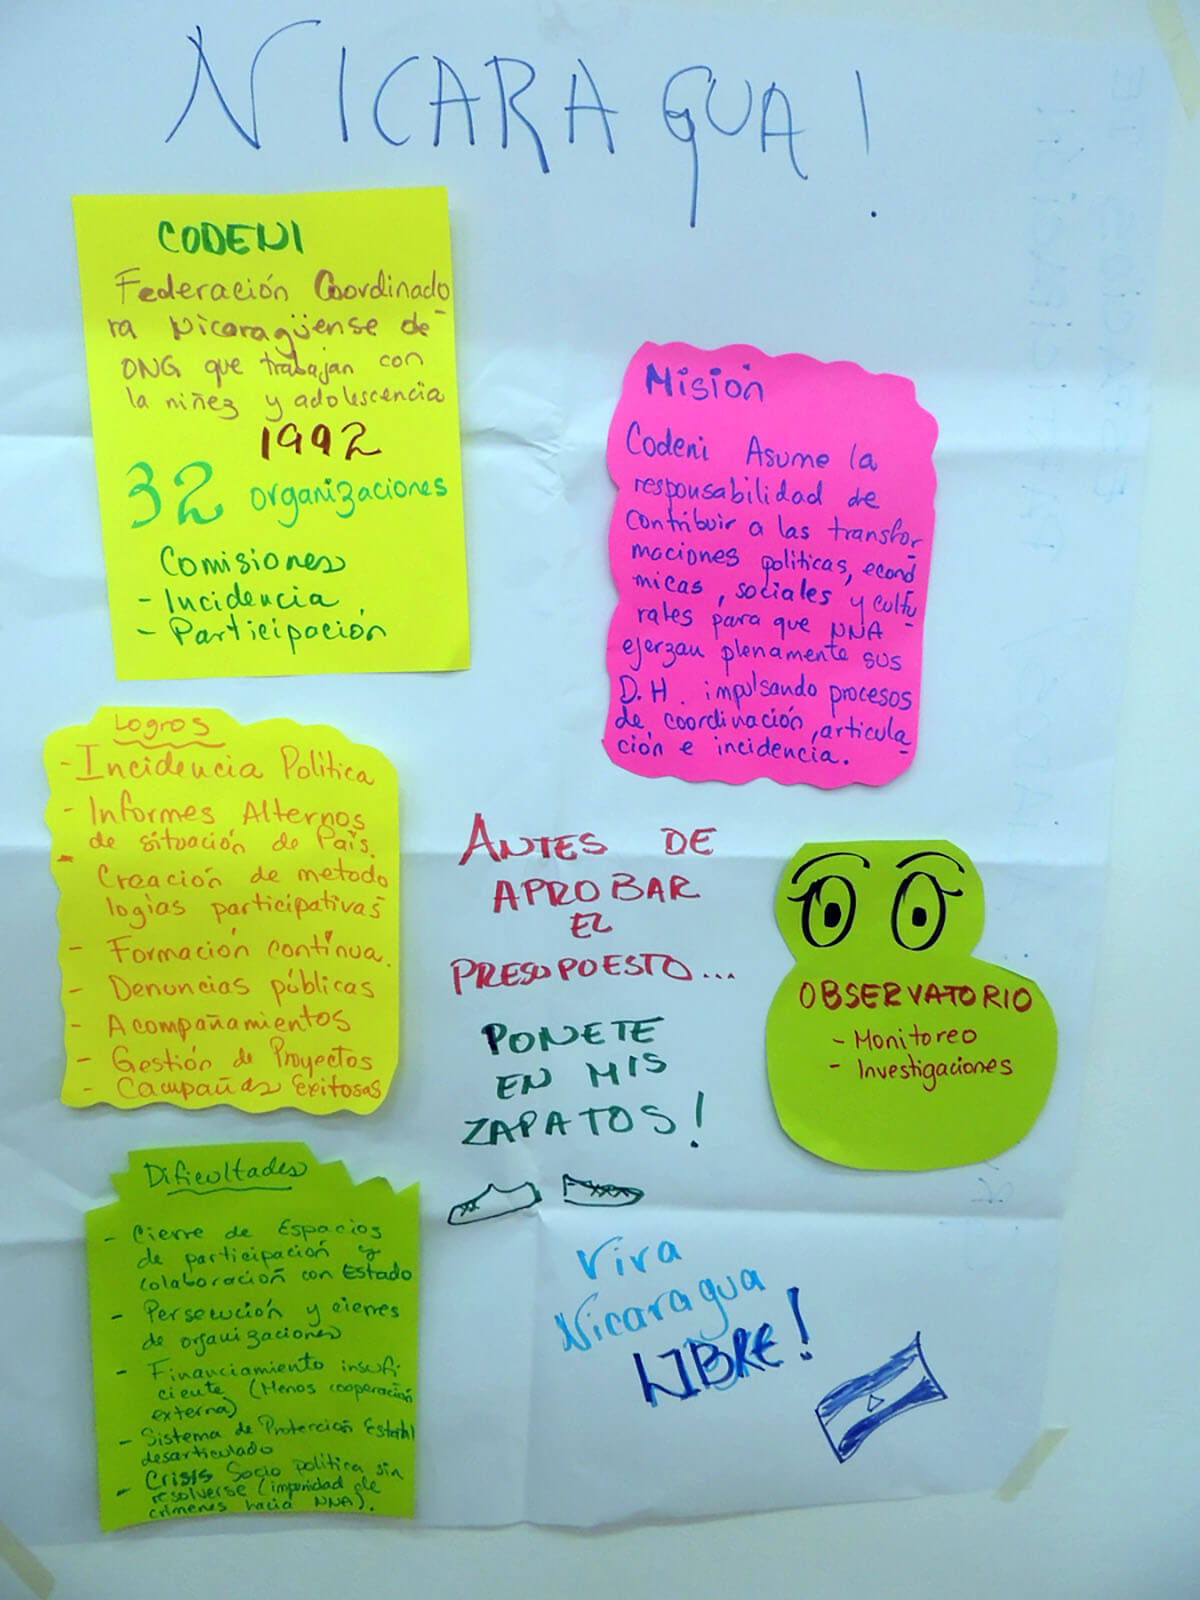 NICARAGUA!
CODENI
Federación Coordinado
ra Nicaragüense de
ONG que trabajan con
la niñez y adolescencia
1992
32 organizaciones
Comisiones
- Incidencia
- Participación
Misión
Codeni Asume la
responsabilidad de
contribuir a las transfor
maciones políticas, econó
micas, sociales y cultu
rales para que NNA
ejerzan plenamente sus
D.H. impulsando procesos
de coordinación, articula
ción e incidencia.
Logros
- Incidencia Política
- Informes Alternos
de situación de País.
- Creación de metodo
logías participativas
- Formación continua.
- Denuncias públicas
- Acompañamientos
- Gestión de Proyectos
- Campañas Exitosas
ANTES DE
APROBAR
EL
PRESUPUESTO...
PONETE
EN MIS
ZAPATOS!
OBSERVATORIO
- Monitoreo
- Investigaciones
Dificultades
- Cierre de Espacios
de participación y
colaboración con Estado
- Persecución y cierres
de organizaciones
- Financiamiento insufi
ciente (Menos cooperación
externa)
- Sistema de Protección Estatal
desarticulado
- Crisis Socio política sin
resolverse (impunidad de
crímenes hacia NNA).
Viva
Nicaragua
LIBRE!